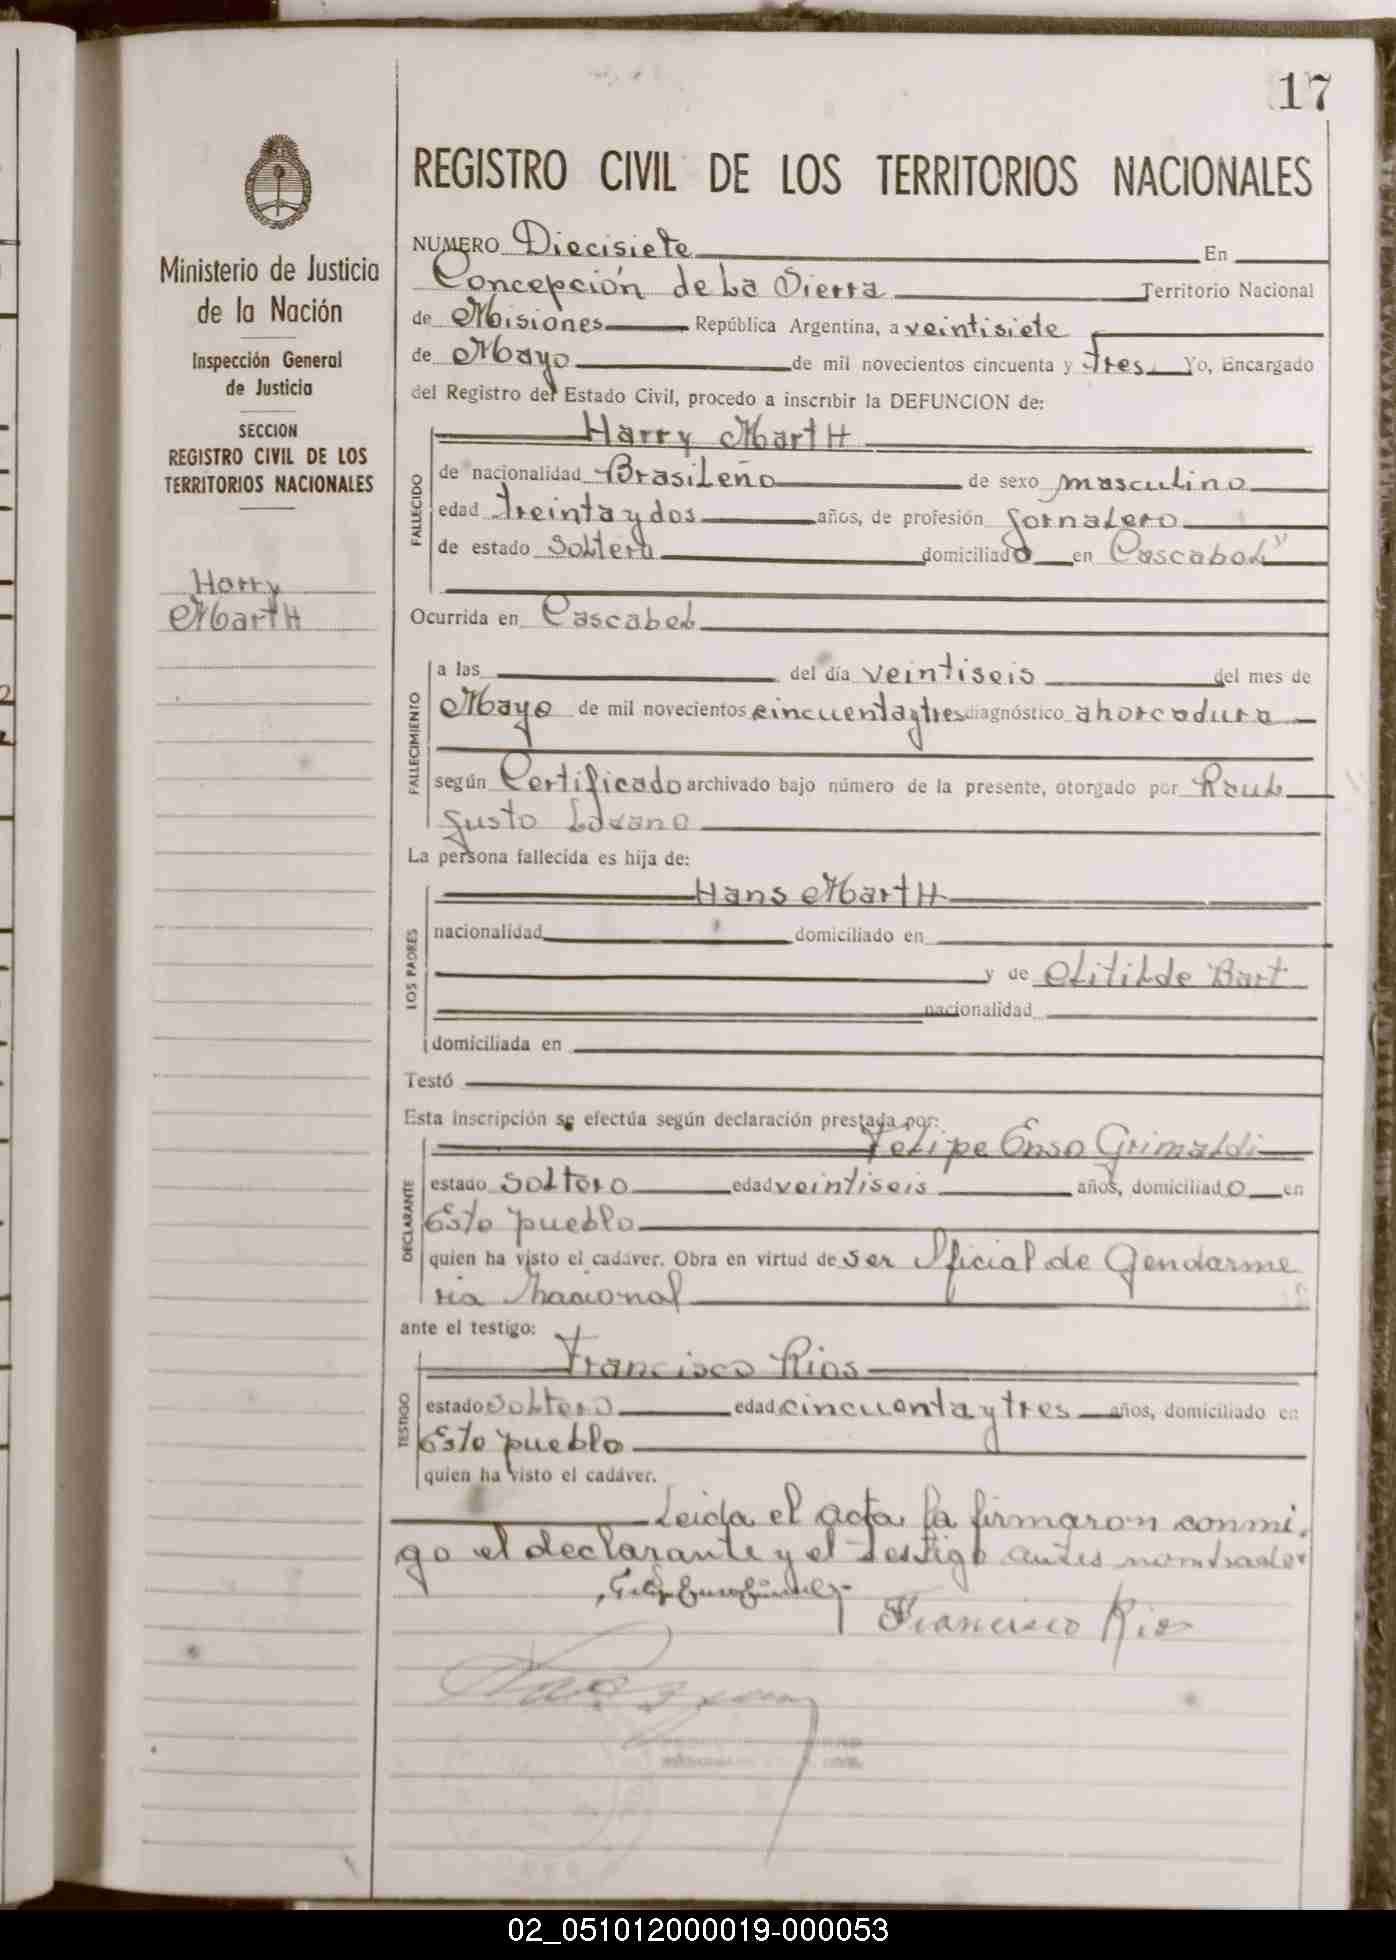 17
Ministerio de Justicia
de la Nación
Inspección General
de Justicia
SECCION
REGISTRO CIVIL DE LOS
TERRITORIOS NACIONALES
Harry
Marth
REGISTRO CIVIL DE LOS TERRITORIOS NACIONALES
NUMERO Diecisiete En
Concepción de La Sierra Territorio Nacional
de Misiones República Argentina, a veintisiete
de Mayo de mil novecientos cincuenta y tres Yo, Encargado
del Registro del Estado Civil, procedo a inscribir la DEFUNCION de:
Harry Marth
FALLECIDO
de nacionalidad Brasileño de sexo masculino
edad treinta y dos años, de profesión Jornalero
de estado Soltero domiciliado en Cascabel"
Ocurrida en Cascabel
FALLECIMIENTO
a las del día veintiseis del mes de
Mayo de mil novecientos cincuenta y tres diagnóstico ahorcadura
según Certificado archivado bajo número de la presente, otorgado por Raul
Justo Lozano
La persona fallecida es hija de:
LOS PADRES
Hans Marth
nacionalidad domiciliado en
y de Clitilde Bart
nacionalidad
domiciliada en
Testó
Esta inscripción se efectúa según declaración prestada por:
DECLARANTE
Felipe Enso Grimaldi
estado Soltero edad veintiseis años, domiciliado en
Este pueblo
quien ha visto el cadáver. Obra en virtud de ser Oficial de Gendarme
ria Nacional
ante el testigo:
TESTIGO
Francisco Rios
estado Soltero edad cincuenta y tres años, domiciliado en
Este pueblo
quien ha visto el cadáver.
Leida el acta la firmaron conmi.
go el declarante y el testigo antes nombrados
Francisco Rios
02_051012000019-000053